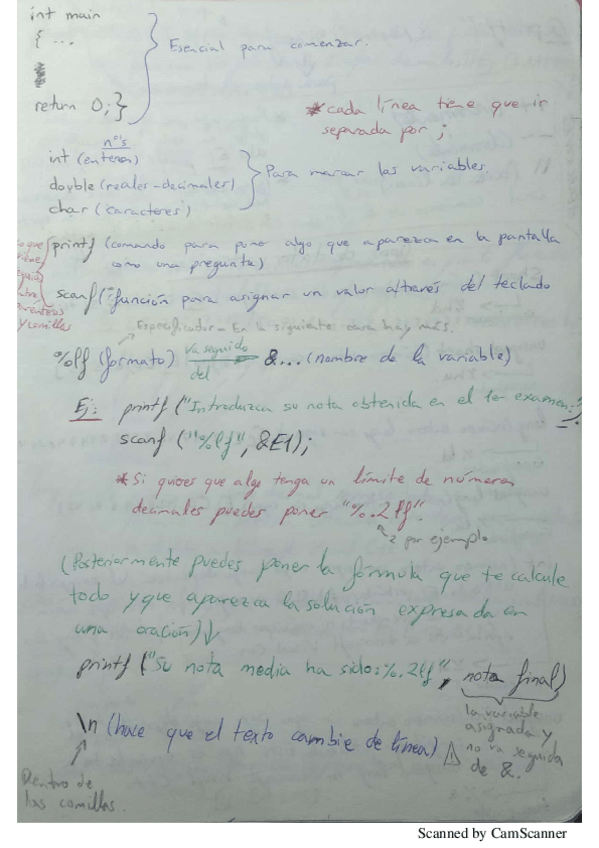 int main
{ ...
return 0;}
Esencial para comenzar.
* cada línea tiene que ir
separada por ;
nº's
int (enteros)
double (reales-decimales)
char (caracteres)
Para marcar las variables.
printf (comando para poner algo que aparezca en la pantalla
como una pregunta)
scanf (función para asignar un valor através del teclado
paréntesis
y comillas
Especificador - En la siguiente cara hay más.
%lf (formato) va seguido del &... (nombre de la variable)
Ej: printf ("Introduzca su nota obtenida en el 1er examen:");
scanf ("%lf", &E1);
* Si quieres que algo tenga un límite de números
decimales puedes poner "%.2lf".
2 por ejemplo
(Posteriormente puedes poner la fórmula que te calcule
todo y que aparezca la solución expresada en
una oración)↓
printf ("Su nota media ha sido:%.2lf", nota final)
la variable
asignada y
no va seguida
de &.
\n (hace que el texto cambie de línea)
Dentro de
las comillas.
Scanned by CamScanner